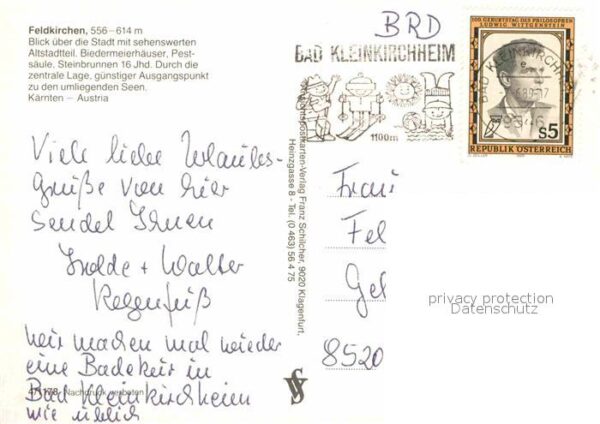 Feldkirchen, 556–614 m
Blick über die Stadt mit sehenswerten
Altstadtteil. Biedermeierhäuser, Pest-
säule, Steinbrunnen 16 Jhd. Durch die
zentrale Lage, günstiger Ausgangspunkt
zu den umliegenden Seen.
Kärnten – Austria
Viele liebe Urlaubs-
grüße von hier
sendet Ihnen
Isolde + Walter
wir machen mal wieder
eine Badekur in
Bad Kleinkirchheim
wie üblich
Nachdruck verboten
Franz Schilcher, 9020 Klagenfurt,
Heinzgasse 8 - Tel. (0 463) 56 4 75
BRD
BAD KLEINKIRCHHEIM
1100m
BAD KLEINKIRCHH
9546
100. GEBURTSTAG DES PHILOSOPHEN
LUDWIG WITTGENSTEIN
S5
REPUBLIK ÖSTERREICH
Frau
Fel
Gel
8520
privacy protection
Datenschutz